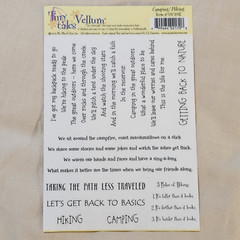 Vellum
Camping/Hiking
I've got my backpack ready to go
We're hiking to the peak
The great outdoors - here we come
Over rocks and through the creek
We'll pitch a tent under the sky
And watch the shooting stars
And in the morning we'll catch a fish
In the reservoir
Camping in the great outdoors
What a wonderful place to be
We'll leave our worries and cares behind
This is the life for me
GETTING BACK TO NATURE
We sit around the campfire, roast marshmallows on a stick
We share some stories and some jokes and watch the ashes get thick.
We warm our hands and faces and have a sing-a-long
What makes it better are the times when we bring our friends along.
TAKING THE PATH LESS TRAVELED
LET'S GET BACK TO BASICS
HIKING CAMPING
3 Rules of Hiking:
1. It's taller than it looks.
2. It's farther than it looks.
3. It's harder than it looks.